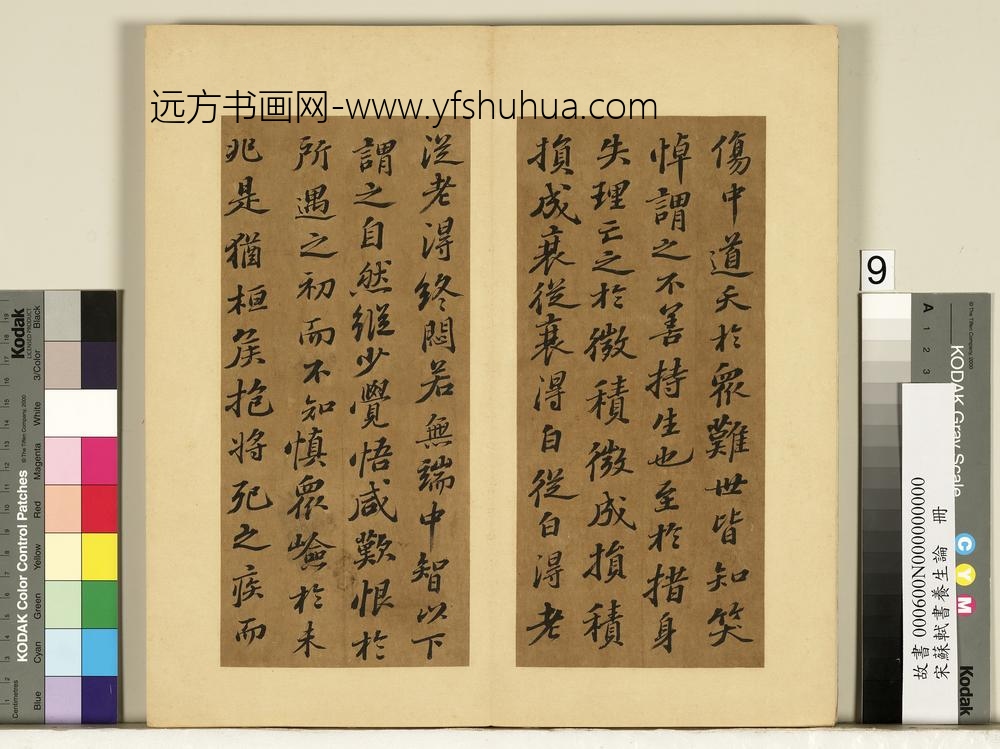 远方书画网-www.yfshuhua.com
傷中道夭於眾難世皆知笑
悼謂之不善持生也至於措身
失理亡之於微積微成損積
損成衰從衰得白從白得老
從老得終悶若無端中智以下
謂之自然縱少覺悟咸歎恨於
所遇之初而不知慎眾嶮於未
兆是猶桓侯抱將死之疾而
9
故書000600N000000000
宋蘇軾書養生論 冊
KODAK Gray Scale
© The Tiffen Company, 2000
Kodak
A 1 2 3
C Y M
Kodak
LICENSED PRODUCT
KODAK Color Control Patches
© The Tiffen Company, 2000
Centimetres
Blue
Cyan
Green
Yellow
Red
Magenta
White
3/Color
Black